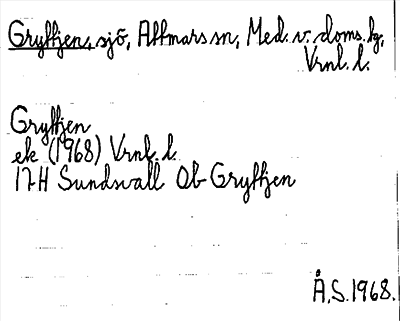 Gryttjen, sjö, Attmars sn, Med. v. doms. hg,
Vrnl. l.
Gryttjen
ek (1968) Vrnl. l.
17H Sundsvall Ob Gryttjen
Å.S. 1968.